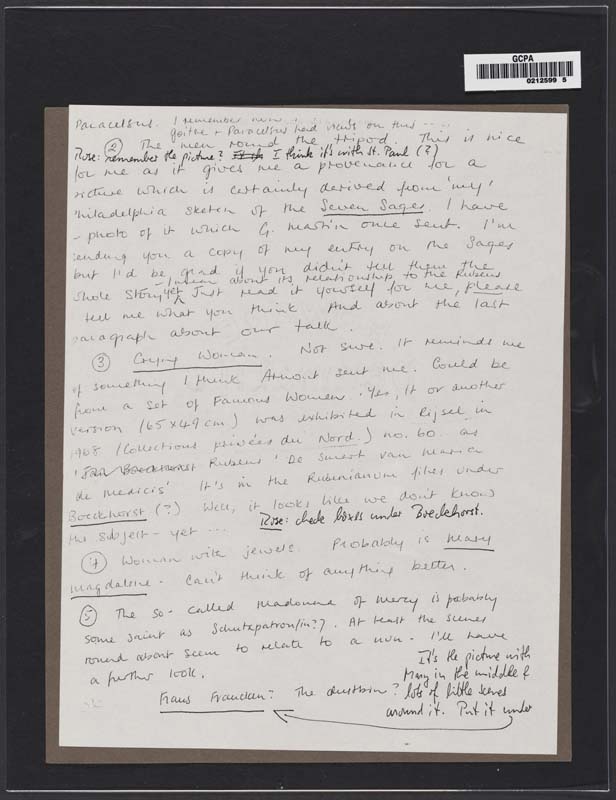 GCPA
0212599 5
Paracelsus. I remember now
Goethe + Paracelsus had views on this ...
② The men round the tripod. This is nice
Rose: remember the picture? I think it's with St. Paul (?)
for me as it gives me a provenance for a
picture which is certainly derived from 'my'
Philadelphia sketch of the Seven Sages. I have
a photo of it which G. Martin once sent. I'm
sending you a copy of my entry on the Sages
but I'd be glad if you didn't tell them the
- I mean about its relationship to the Rubens
whole story yet. Just read it yourself for me, please
tell me what you think. And about the last
paragraph about our talk.
③ Crying Woman. Not sure. It reminds me
of something I think Arnout sent me. Could be
from a set of Famous Women. Yes, it or another
version (65 x 49 cm) was exhibited in Rijsel in
1968 (Collections privées du Nord.) no. 60. as
'Jan Boeckhorst Rubens' 'De Smert van Maria
de Medicis' It's in the Rubenianum files under
Boeckhorst (?) Well, it looks like we don't know
the subject - yet ...
Rose: check boxes under Boeckhorst.
④ Woman with jewels. Probably is Mary
Magdalene. Can't think of anything better.
⑤ The so-called Madonna of Mercy is probably
some saint as Schutzpatron/in??. At least the scenes
round about seem to relate to a nun. I'll have
a further look.
It's the picture with
Mary in the middle &
lots of little scenes
around it. Put it under
Frans Francken? The dustbin?